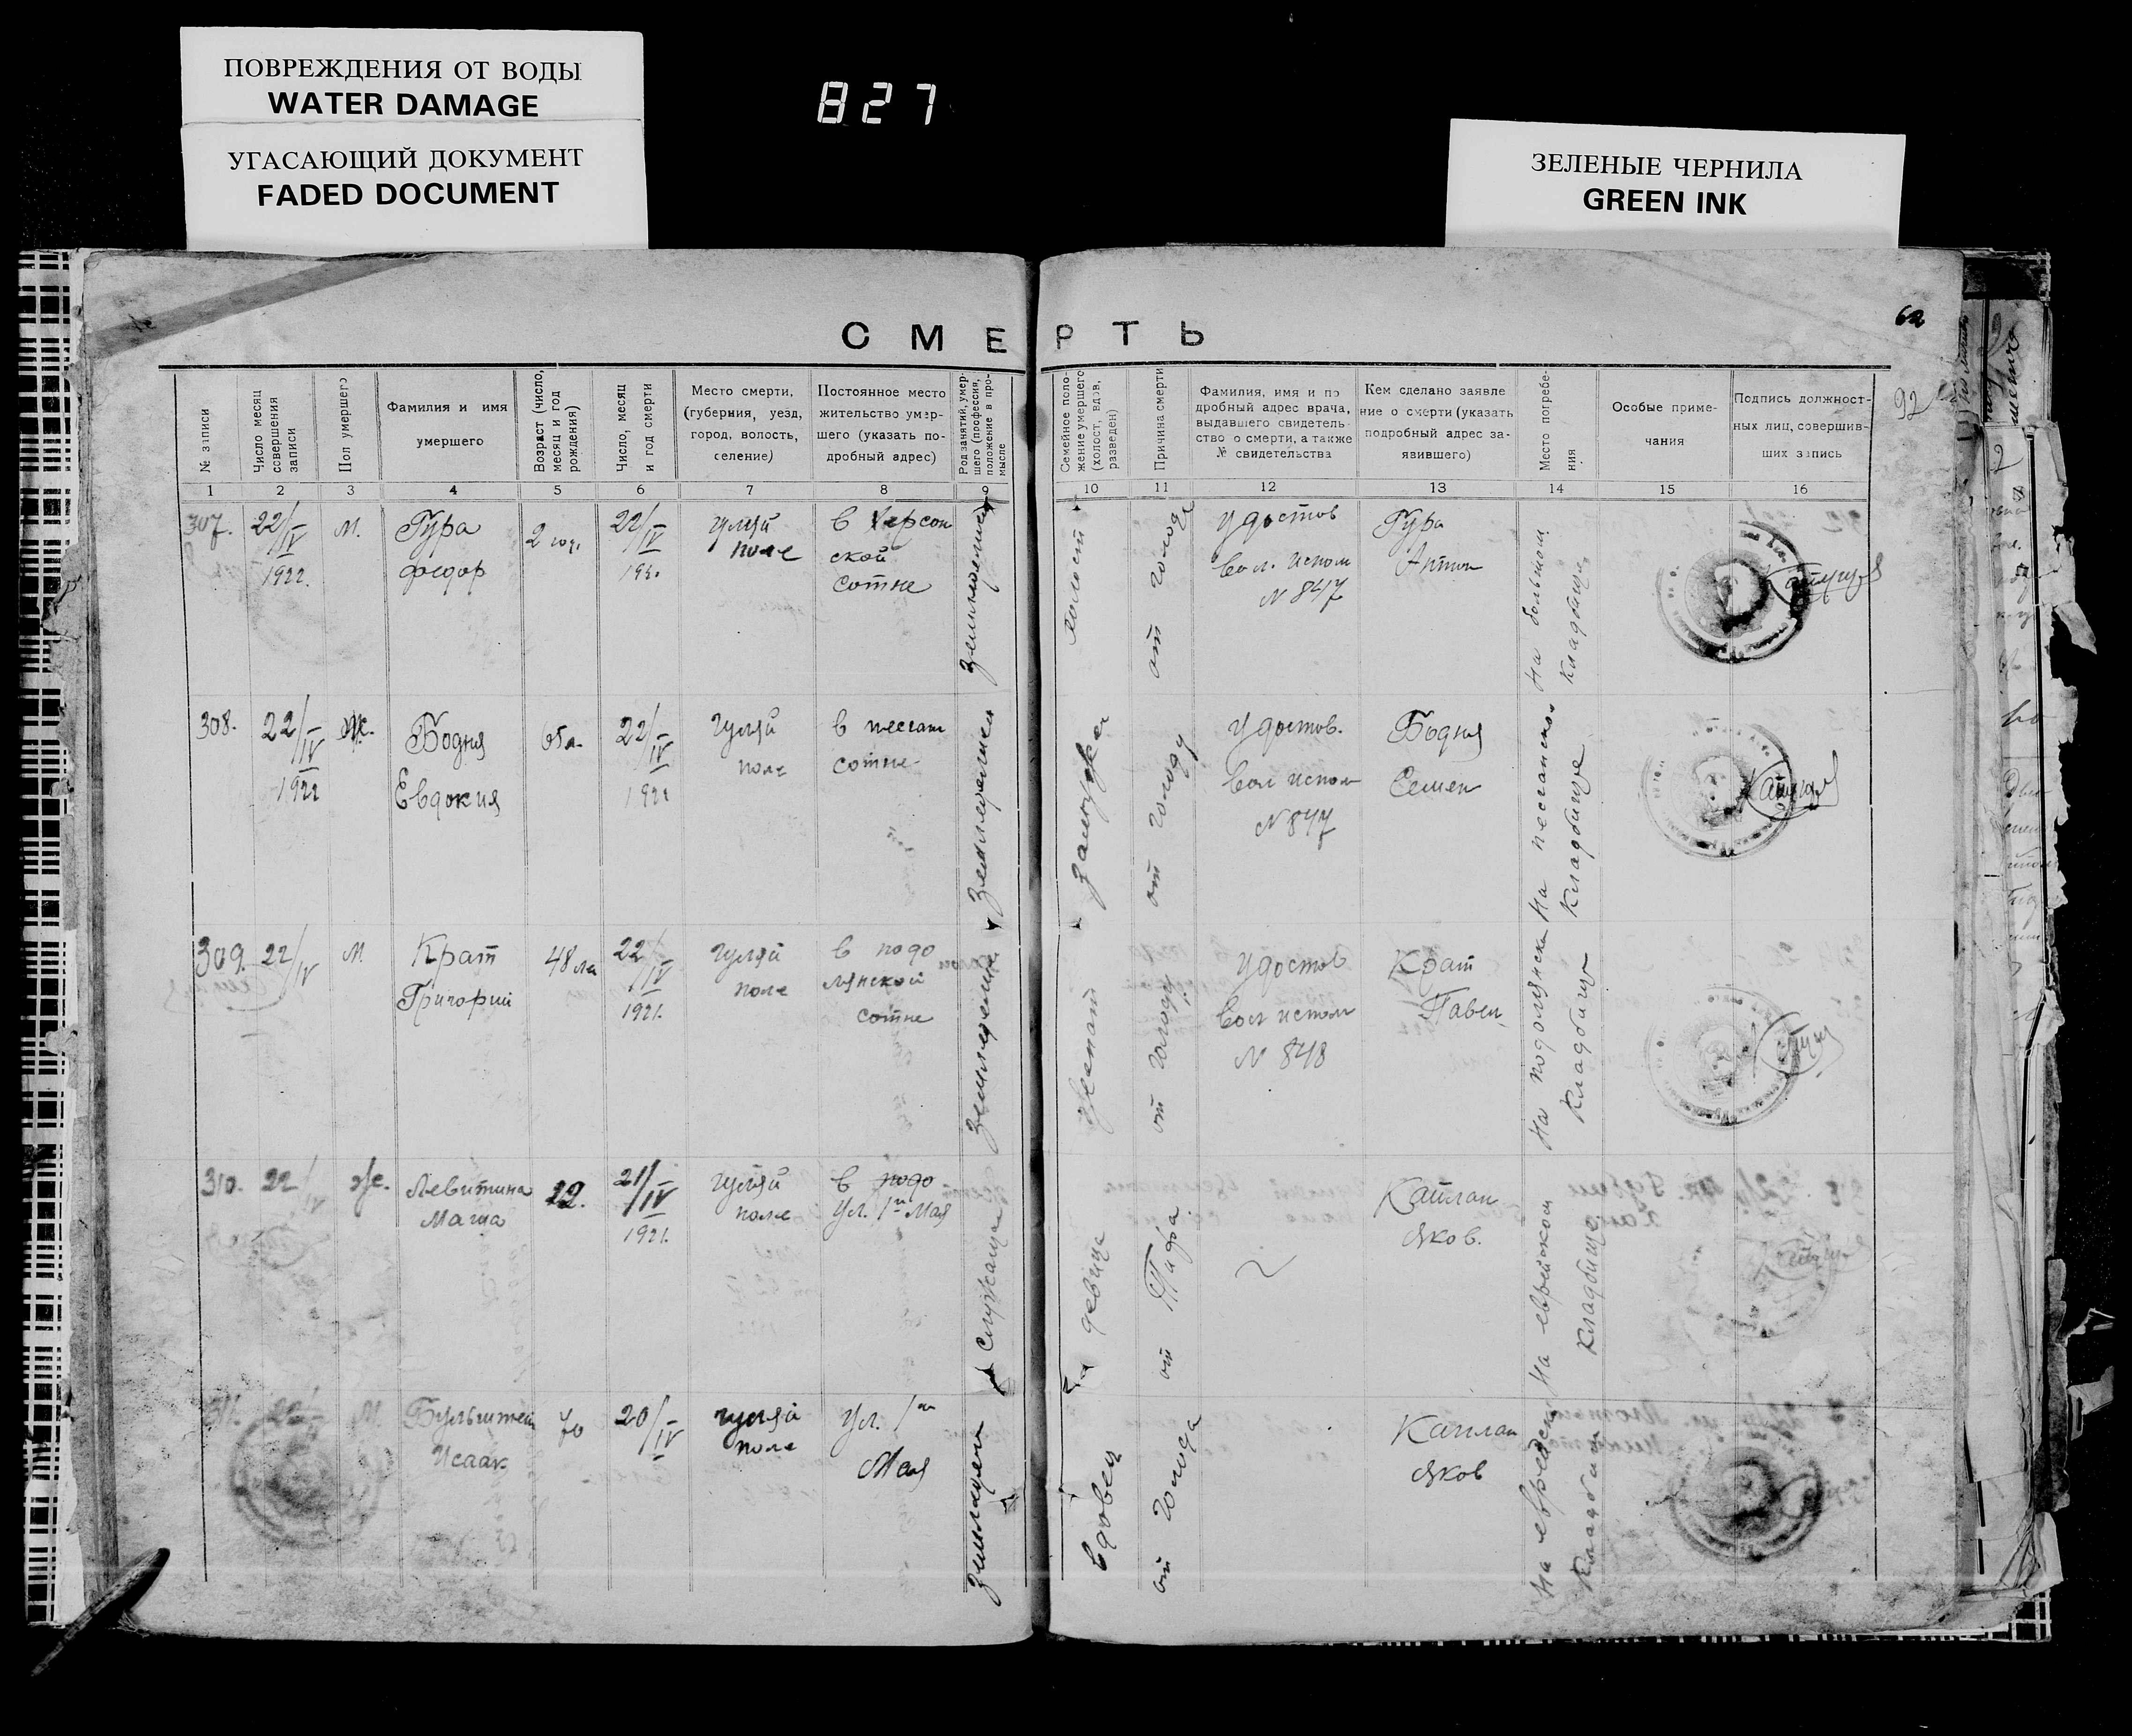 ПОВРЕЖДЕНИЯ ОТ ВОДЫ
WATER DAMAGE
УГАСАЮЩИЙ ДОКУМЕНТ
FADED DOCUMENT
827
ЗЕЛЕНЫЕ ЧЕРНИЛА
GREEN INK
СМЕРТЬ
62
92
№ записи
Число месяц
совершения
записи
Пол умершего
Фамилия и имя
умершего
Возраст (число,
месяц и год
рождения)
Число, месяц
и год смерти
Место смерти,
(губерния, уезд,
город, волость,
селение)
Постоянное место
жительство умер-
шего (указать по-
дробный адрес)
Род занятий, умер-
шего (профессия,
положение в про-
мысле
Семейное поло-
жение умершего
(холост, вдов,
разведен)
Причина смерти
Фамилия, имя и по
дробный адрес врача,
выдавшего свидетель-
ство о смерти, а также
№ свидетельства
Кем сделано заявле
ние о смерти (указать
подробный адрес за-
явившего)
Место погребе-
ния
Особые приме-
чания
Подпись должност-
ных лиц, совершив-
ших запись
1 2 3 4 5 6 7 8 9 10 11 12 13 14 15 16
307.
22/IV
1922.
М.
Гура
Федор
2 год.
22/IV
192
Гуляй
поле
в Херсон
ской
сотне
холост
от голода
Удостов
Вол. испол
N 847
Гура
Антон
На большом
кладбище
308.
22/IV
1922
Ж.
Бодня
Евдокия
65 л.
22/IV
1922
Гуляй
поле
в песчан
сотне
Земледелец
замужем
от голоду
Удостов.
Вол испол
N 847
Бодня
Семен
На песчанском
Кладбище
309.
22/IV
М
Крат
Григорий
48 ле
22/IV
1921.
Гуляй
поле
в подо
лянской
сотне
Земледелец
женат
от голоду
Удостов
Вол испол
N 848
Крат
Павел
На подолянском
Кладбище
310.
22/IV
Же.
Левитина
Маша
22.
21/IV
1921.
Гуляй
поле
в подо
Ул. 1го Мая
Служащая
девица
от Тифа
Каплан
Яков.
На еврейском
Кладбище
311.
22/IV
М.
Исаак
70
20/IV
Гуляй
поле
Ул. 1го
Мая
вдовец
от голода
Каплан
Яков
На еврейском
Кладбище